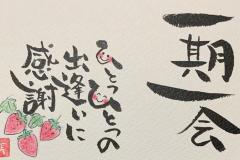 一期一会
ひとつひとつの
出逢いに
感謝